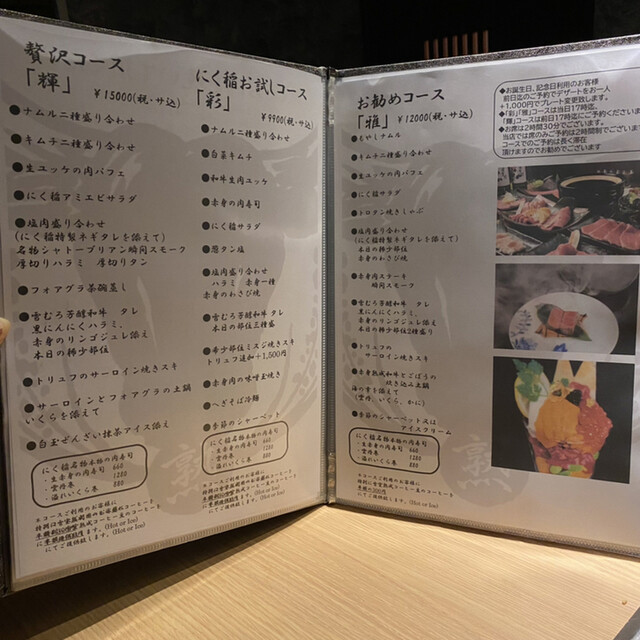 贅沢コース
「輝」
¥15000(税・サ込)
●ナムル二種盛り合わせ
●キムチ二種盛り合わせ
●生ユッケの肉パフェ
●にく稲アミエビサラダ
●塩肉盛り合わせ
(にく稲特製牛ギタレを添えて)
名物シャトーブリアン瞬間スモーク
厚切りハラミ 厚切りタン
●フォアグラ茶碗蒸し
●雪むろ芳醇和牛 タレ
黒にんにくハラミ、
赤身のリンゴジュレ添え
本日の稀少部位
●トリュフのサーロイン焼きスキ
●サーロインとフォアグラの土鍋
いくらを添えて
●白玉ぜんざい抹茶アイス添え
にく稲名物本極の肉寿司
・生赤身の肉寿司 660
・雲丹巻 1320
・溢れいくら巻 880
にく稲お試しコース
「彩」
¥9900(税・サ込)
●ナムル二種盛り合わせ
●白菜キムチ
●和牛生肉ユッケ
●赤身の肉寿司
●にく稲サラダ
●葱タン塩
●塩肉盛り合わせ
ハラミ 赤身一種
赤身のわさび焼
●雪むろ芳醇和牛 タレ
本日の部位三種盛
●希少部位ミスジ焼きスキ
トリュフ追加+1,500円
●赤身肉の味噌玉焼き
●へぎそば冷麺
●季節のシャーベット
にく稲名物本極の肉寿司
・生赤身の肉寿司 660
・雲丹巻 1320
・溢れいくら巻 880
お勧めコース
「雅」
¥12000(税・サ込)
●もやしナムル
●キムチ二種盛り合わせ
●生ユッケの肉パフェ
●にく稲サラダ
●トロタン焼きしゃぶ
●塩肉盛り合わせ
(にく稲特製牛ギタレを添えて)
本日の稀少部位
赤身のわさび焼
●赤身肉ステーキ
瞬間スモーク
●雪むろ芳醇和牛 タレ
黒にんにくハラミ、
赤身のリンゴジュレ添え
本日の稀少部位2種盛り
●トリュフの
サーロイン焼きスキ
●季節のシャーベット又は
アイスクリーム
にく稲名物本極の肉寿司
・生赤身の肉寿司 660
・雲丹巻 1320
・溢れいくら巻 880
◆お誕生日、記念日利用のお客様
前日迄のご予約でデザートをお一人
+1,000円でプレート変更致します。
◆「彩」「雅」コースは当日17時迄、
「輝」コースは前日17時迄にご予約くださいませ
◆お席は2時間30分でございます。
当店では席のみご予約は2時間制でございます
コースでのご予約は長く滞在
頂けますのでお勧めでございます